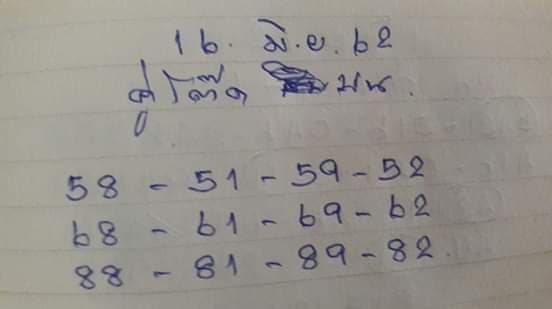 16. มิ.ย. 62
คู่โต๊ด บน.
58 - 51 - 59 - 52
68 - 61 - 69 - 62
88 - 81 - 89 - 82.